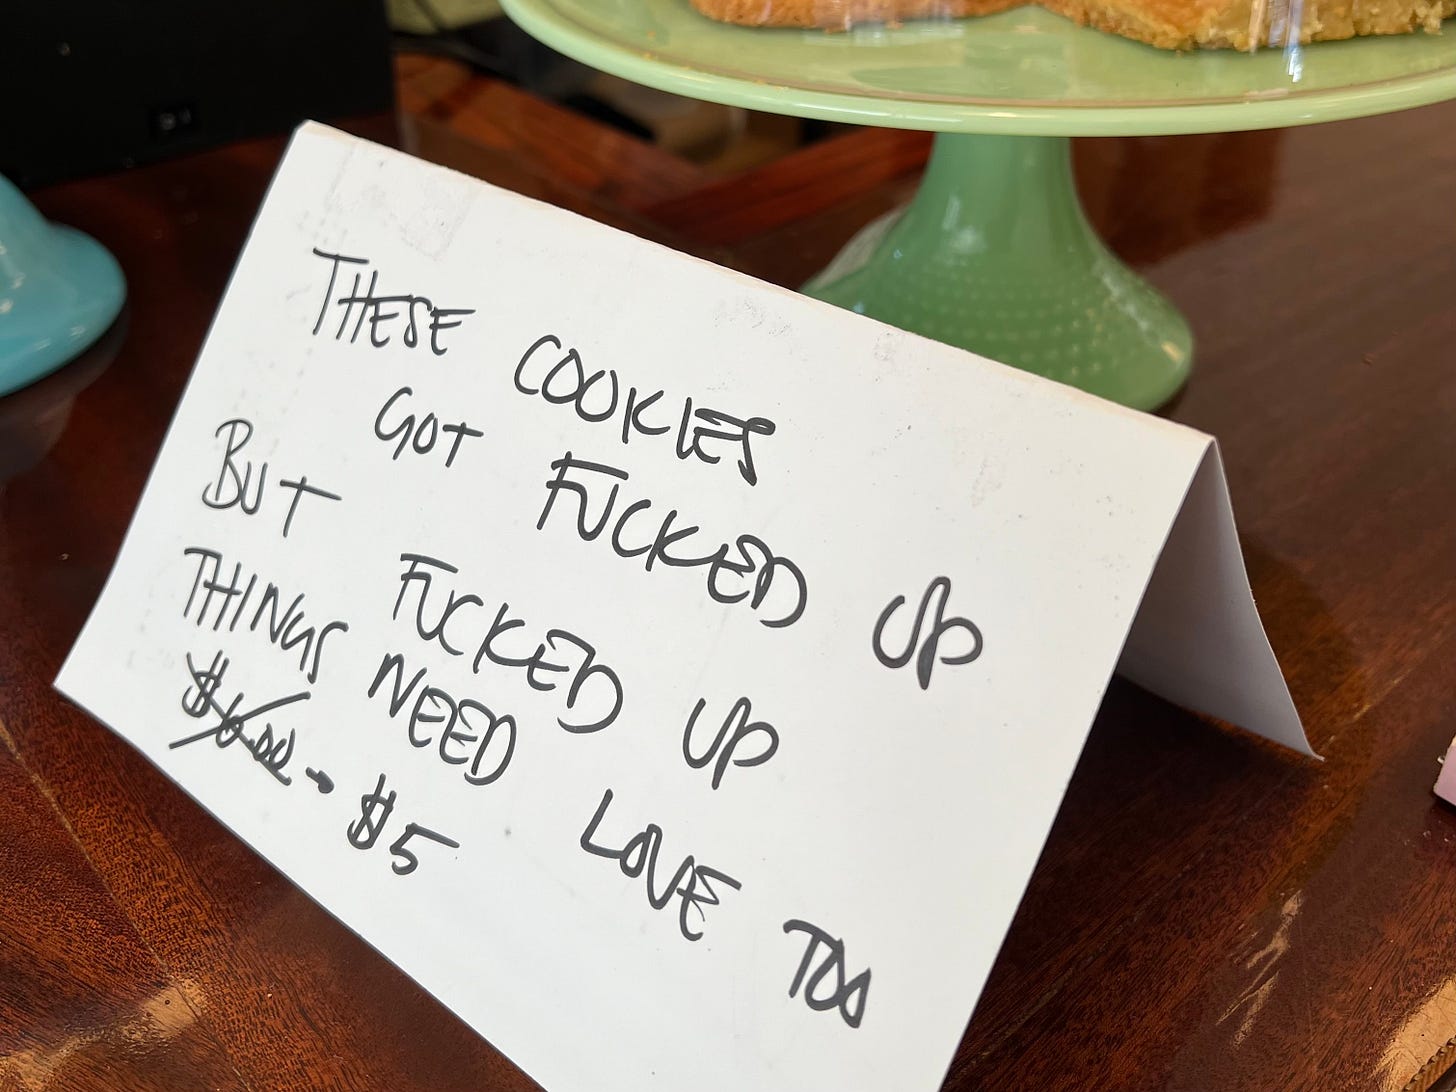 THESE COOKIES
GOT FUCKED UP
BUT FUCKED UP
THINGS NEED LOVE TOO
$6.00 - $5